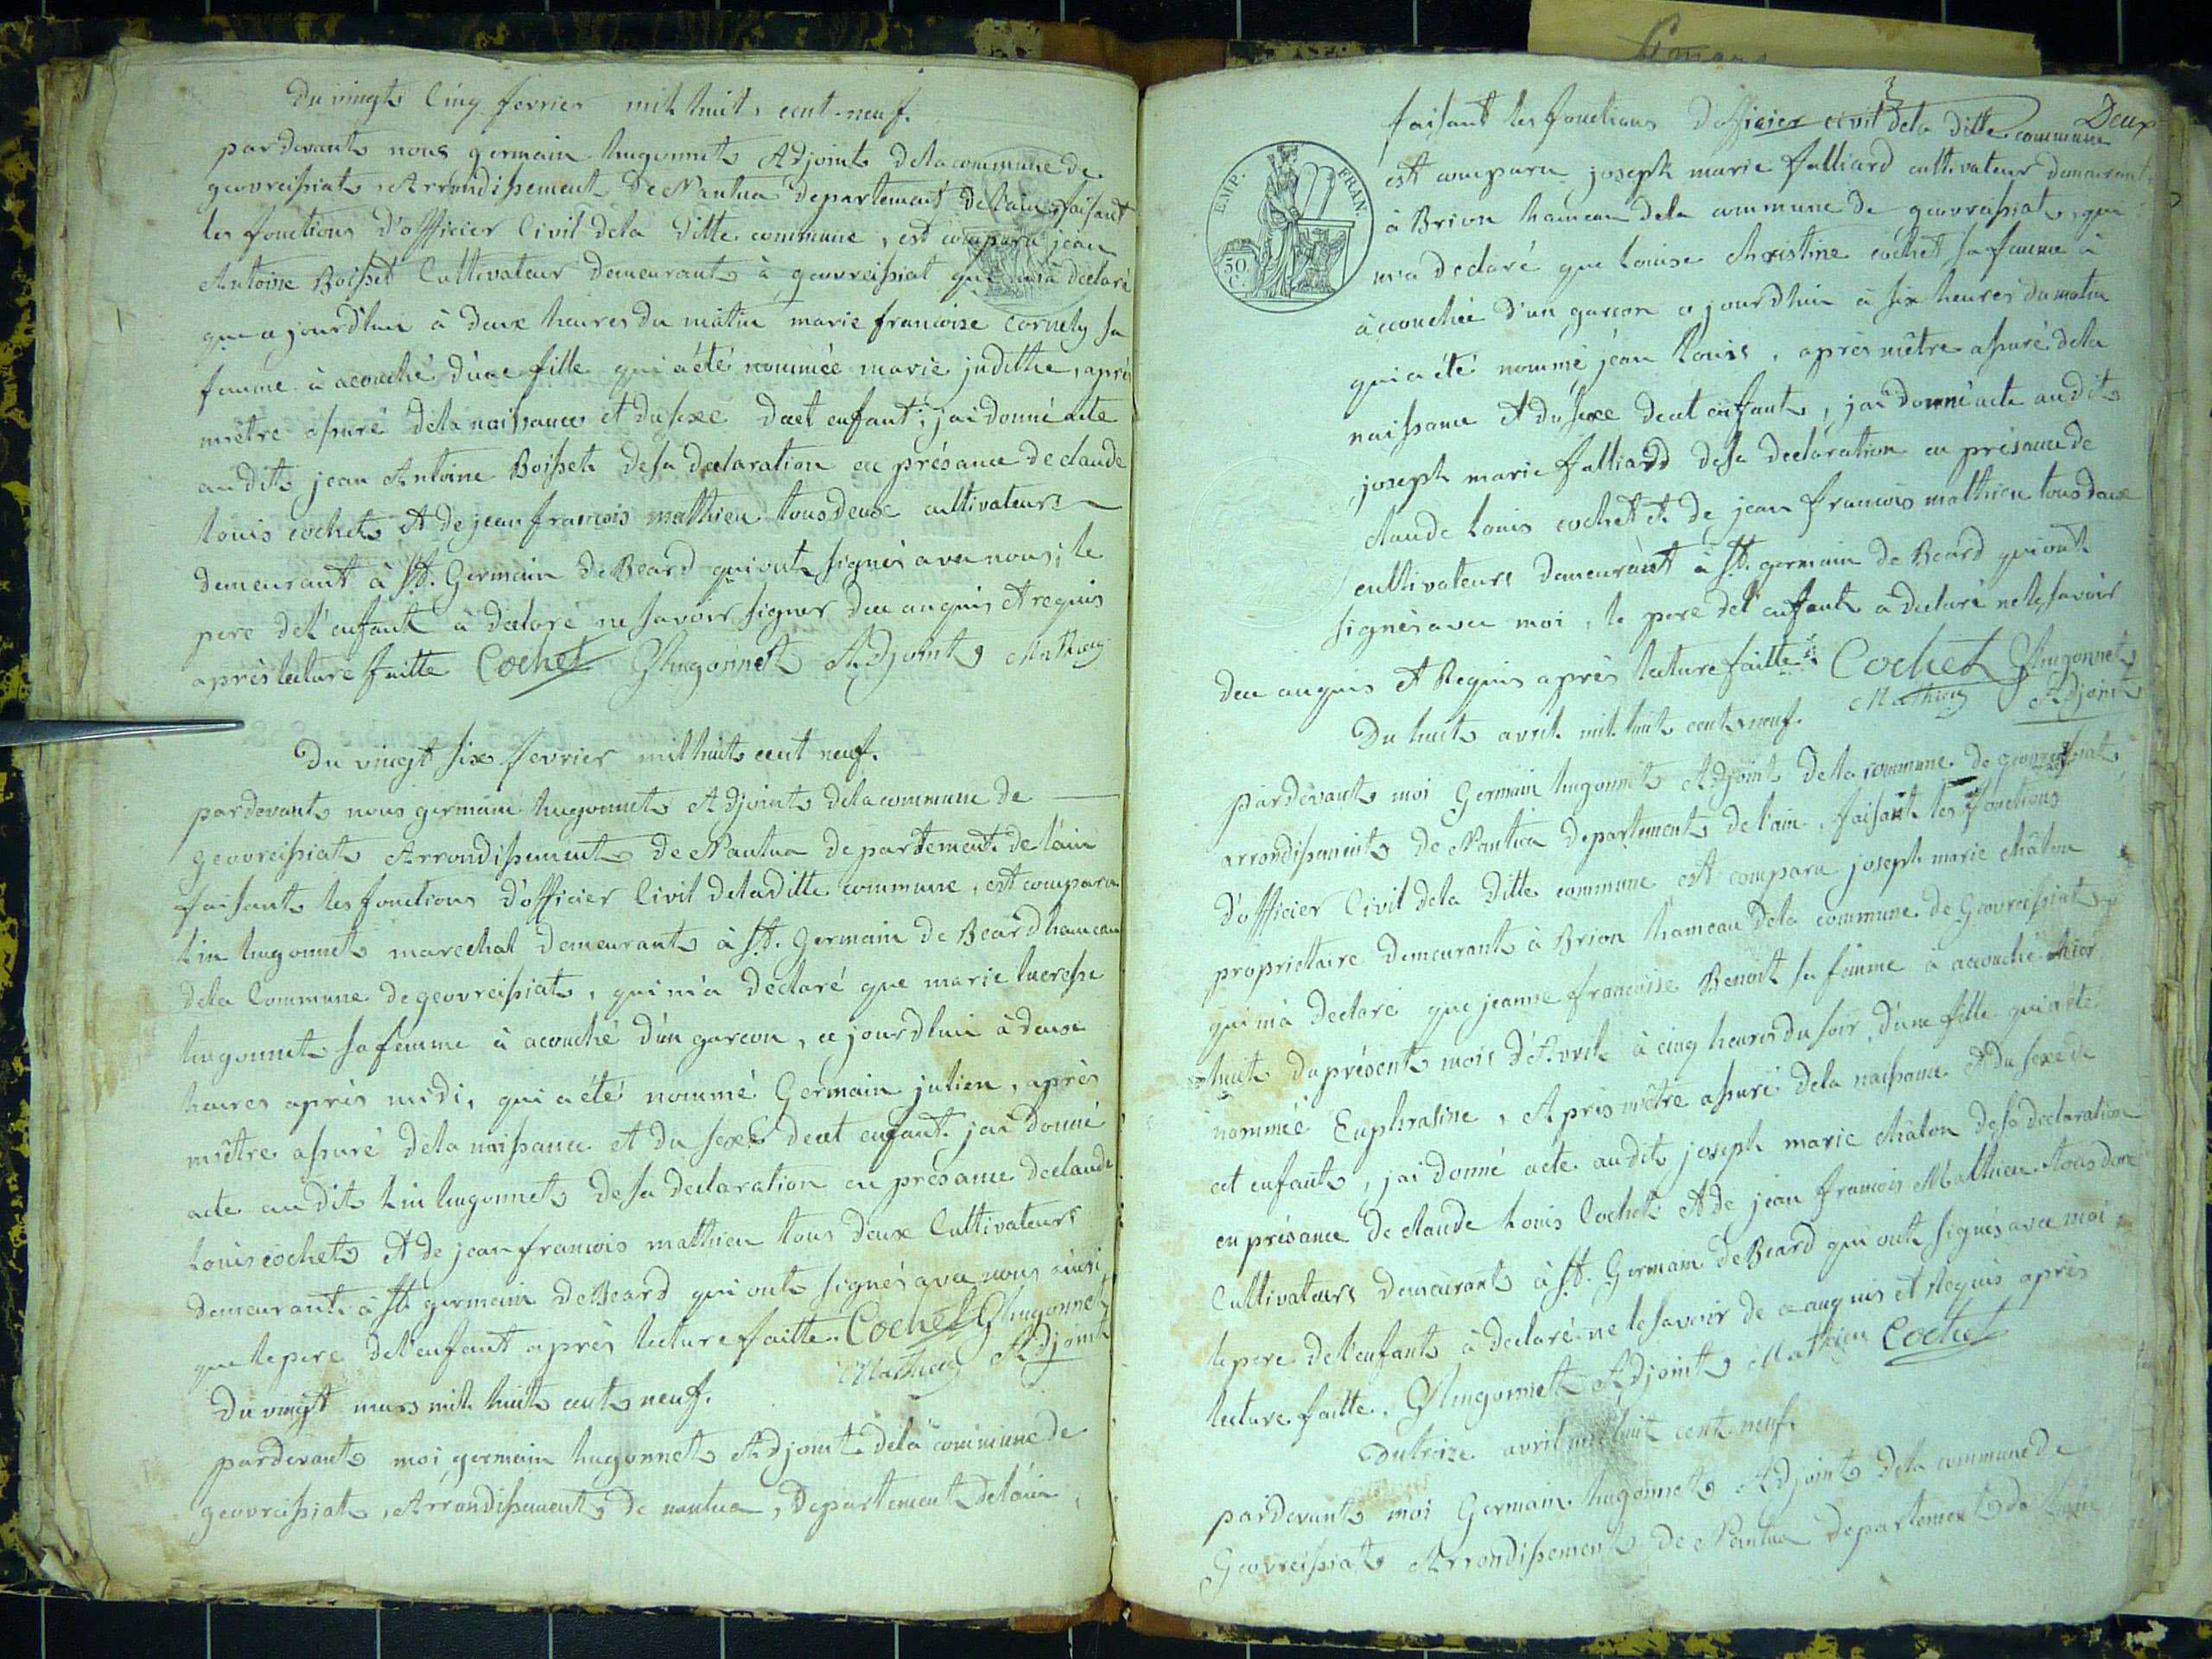 Du vingt Cinq fevrier mil huit cent neuf.
pardevant nous germain hugonnet Adjoint dela commune de
geovreissiat, Arrondissement de Nantua departement de lain, faisant
les fonctions d'officier Civil dela ditte commune, est comparu jean
Antoine Boisset Cultivateur demeurant à geovreissiat qui m'a déclaré
que ajourdhui à deux heures du matin marie francoise cornely sa
femme à acouché d'une fille qui a été nommée marie judithe, après
mêtre assuré dela naissance et du sexe dect enfant; jai donné acte
audit jean Antoine Boisset desa declaration en présance de claude
louis cochet et de jean francois mathieu tous deux cultivateurs
demeurant à St. Germain de Beard qui ont signés avec nous; le
pere del'enfant à declaré ne savoir signer dece anquis et requis
après lecture faitte Cochet GHugonnet Adjoint Mathieu
Du vingt six fevrier mil huit cent neuf.
pardevant nous germain hugonnet Adjoint dela commune de
geovreissiat Arrondissement de Nantua departement de lain
faisant les fonctions d'officier Civil deladitte commune, est comparu
lin hugonnet marechal demeurant à St. Germain de Beard hameau
dela Commune de geovreissiat, qui m'a declaré que marie lucresse
hugonnet sa femme à acouché d'un garcon, ce jourdhui à deux
heures après midi, qui a été nommé Germain julien, après
mêtre assuré dela naissance et du sexe dect enfant. jai donné
acte audit lin hugonnet desa declaration en présance declaude
louis cochet et de jean francois mathieu tous deux Cultivateurs
demeurant à St. germain de Beard qui ont signés avec nous ainsi
que le pere del'enfant après lecture faitte. Cochet GHugonnet
Mathieu Adjoint
Du vingt mars mil huit cent neuf.
pardevant moi germain hugonnet Adjoint dela commune de
geovreissiat, Arrondissement de nantua, Departement delain,
3
Deux
faisant les fonctions d'officier civil dela ditte commune
EMP. FRAN.
50 C.
est comparu joseph marie falliard cultivateur demeurant
à Brion hameau dela commune de geovressiat, qui
m'a declaré que louise christine cochet sa femme à
àccouchée d'un garcon ajourdhui à six heures du matin
qui a été nommé jean louis, après mêtre assuré dela
naissance et du sexe dect enfant, jai donné acte audit
joseph marie falliard desa declaration en présance de
claude louis cochet et de jean francois mathieu tous deux
cultivateurs demeurant à St. germain de Beard qui ont
signés avec moi, le pere del'enfant a declaré nele savoir
dece anquis et Requis après lecture faitte. Cochet GHugonnet
Mathieu Adjoint
Du huit avril mil huit cent neuf.
pardevant moi Germain hugonnet Adjoint dela commune de geovreissiat
arrondissement de Nantua departement de l'ain, faisant les fonctions
d'officier Civil dela ditte commune est comparu joseph marie châton
proprietaire demeurant à Brion hameau dela commune de Geovreissiat
qui m'a declaré que jeanne francoise Benoit sa femme à acouché hier
huit du présent mois d'Avril à cinq heures du soir, d'une fille qui a été
nommée Euphrasine, Après mêtre assuré dela naissance et du sexe de
cet enfant, jai donné acte audit joseph marie châton desa declaration
en présance de claude louis Cochet et de jean francois Mathieu tous deux
Cultivateurs demeurant à St. Germain de Beard qui ont signés avec moi,
le pere del'enfant à declaré ne le savoir de ce anquis et Requis après
lecture faitte. GHugonnet Adjoint Mathieu Cochet
Du treize avril mil huit cent neuf.
pardevant moi Germain hugonnet Adjoint dela commune de
Geovreissiat Arrondissement de Nantua departement de lain